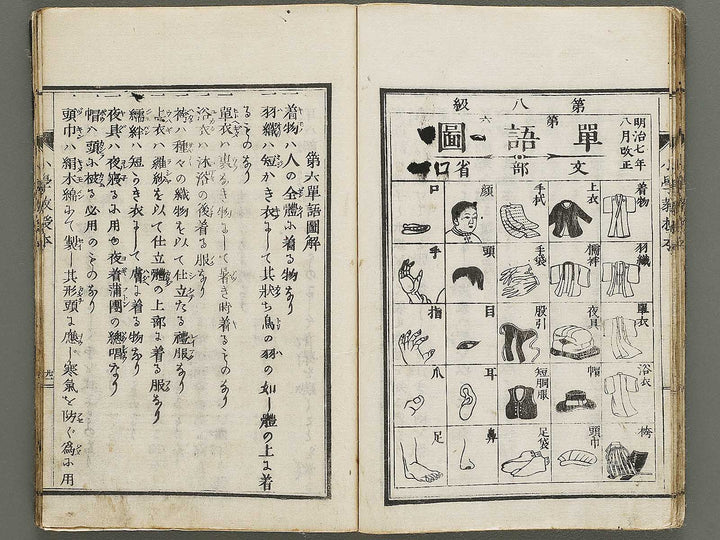 第八級
明治七年
八月改正
第六
單語圖
文部省
着物
羽織
單衣
浴衣
袴
上衣
襦袢
夜具
帽
頭巾
手拭
手袋
股引
短胴服
足袋
顔
頭
目
耳
鼻
口
手
指
爪
足
第六單語圖解
一着物ハ人の全體に着る物なり
一羽織ハ短かき衣にして其狀ち鳥の羽の如し體の上に着
るものなり
一單衣ハ裏なき物にして暑き時着るものなり
一浴衣ハ沐浴の後着る服なり
一袴ハ種々の織物を以て仕立たる禮服なり
一上衣ハ羅紗を以て仕立體の上部に着る服なり
一襦袢ハ短かき衣にして膚に着る物なり
一夜具ハ夜寢るに用ゆ夜着蒲團の總唱なり
一帽ハ頭に被る必用のものなり
一頭巾ハ絹木綿にて製し其形頭に應し寒氣を防ぐ爲に用
小學教授本